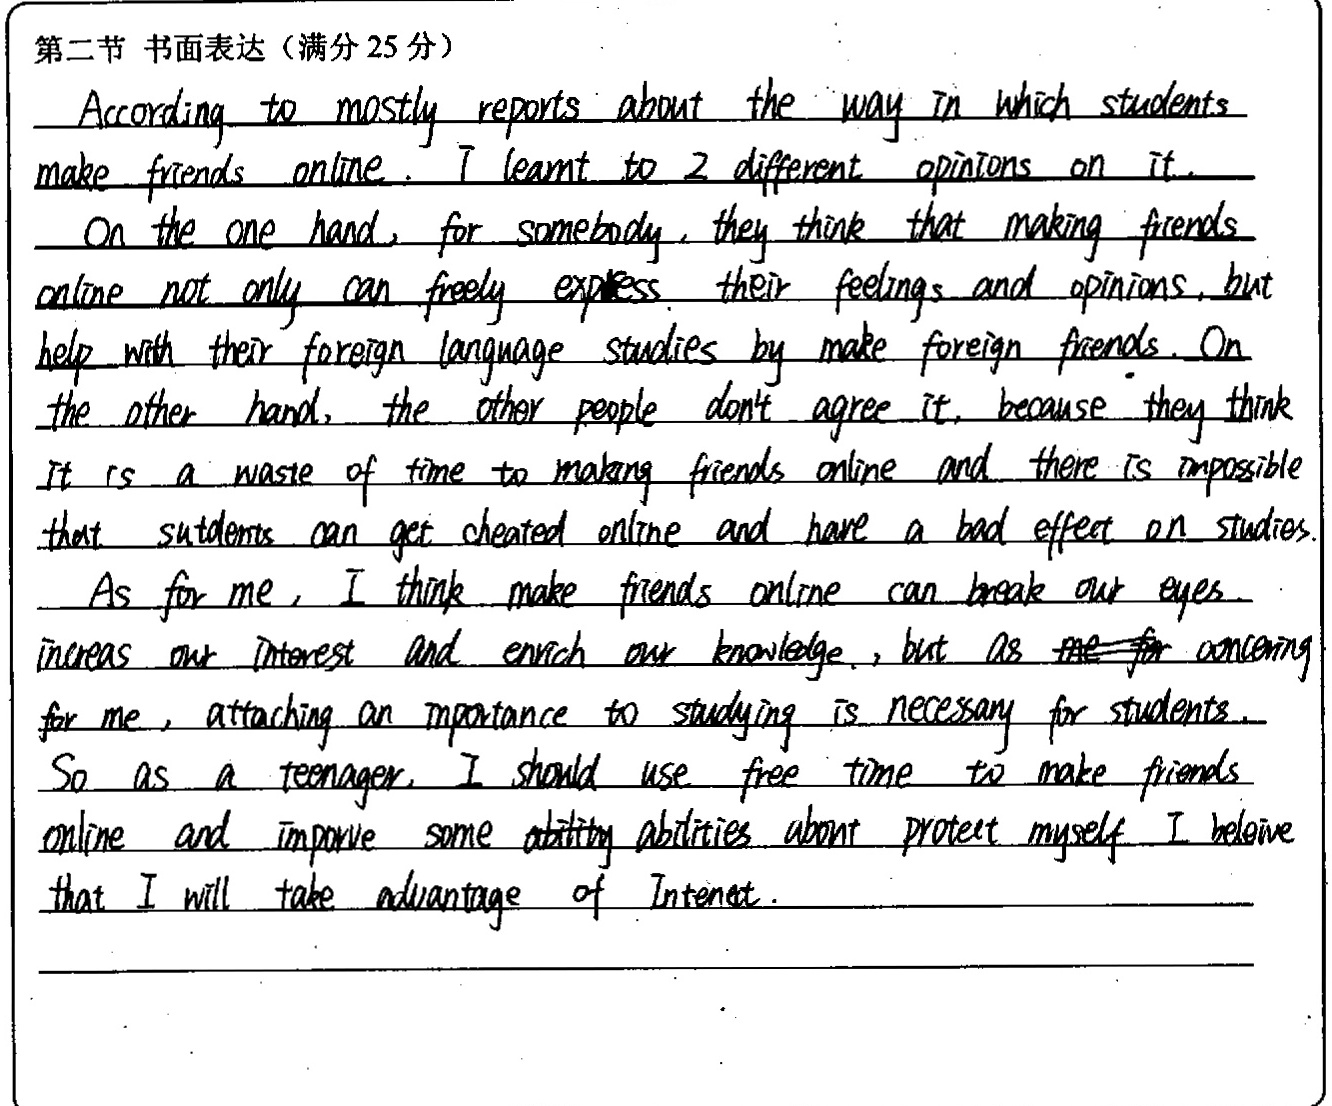 第二节 书面表达（满分 25 分）
According to mostly reports about the way in which students
make friends online. I learnt to 2 different opinions on it.
On the one hand, for somebody, they think that making friends
online not only can freely express their feelings and opinions, but
help with their foreign language studies by make foreign friends. On
the other hand, the other people don't agree it, because they think
it is a waste of time to making friends online and there is impossible
that sutdents can get cheated online and have a bad effect on studies.
As for me, I think make friends online can break our eyes.
increas our interest and enrich our knowledge., but as concering
for me, attaching an mportance to studying is necessary for students.
So as a teenager, I should use free time to make friends
online and imporve some abilities about protect myself I beleive
that I will take advantage of Intenet.